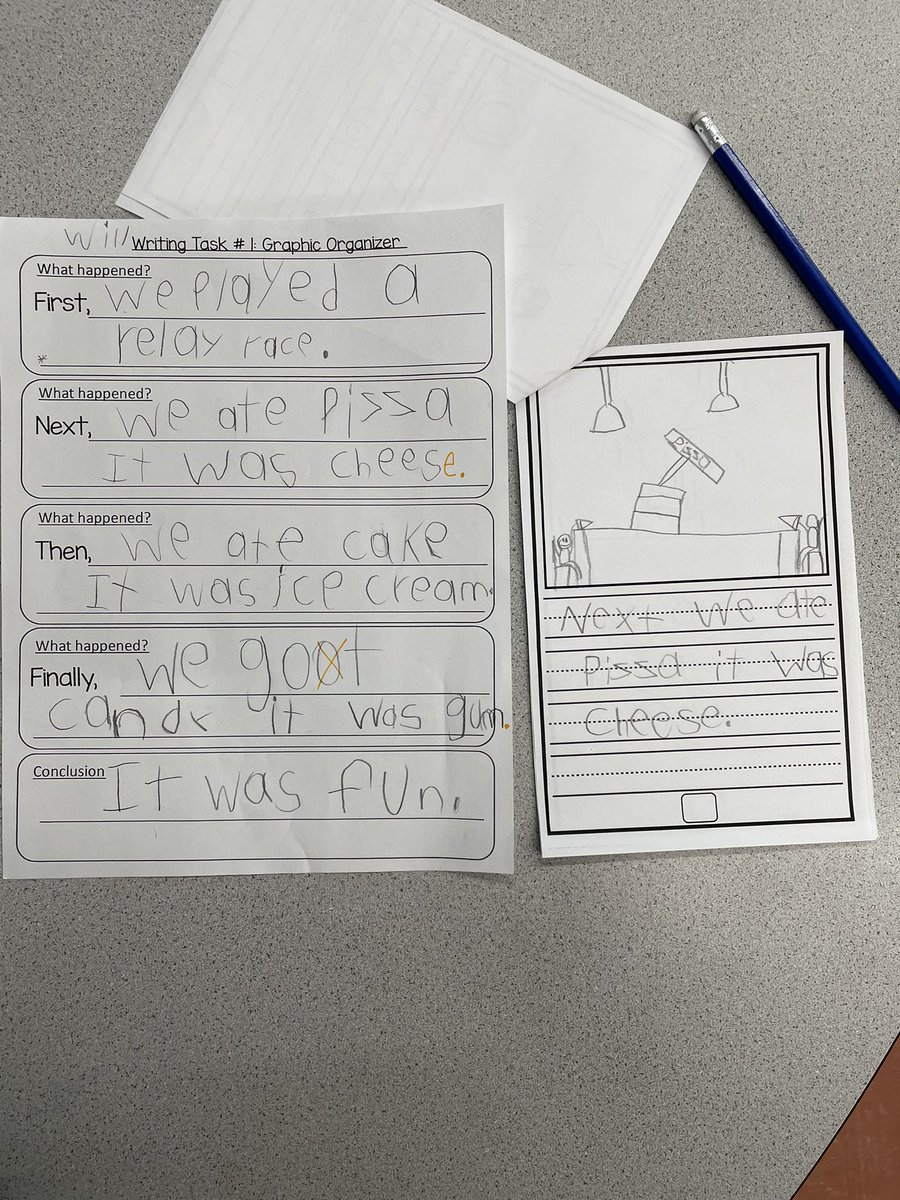 Will Writing Task # 1: Graphic Organizer
What happened?
First, We Played a
* relay race.
What happened?
Next, We ate Pissa
It was cheese.
What happened?
Then, We ate cake
It was ice cream.
What happened?
Finally, We goot
candy it was gum.
Conclusion It was fun.
Pissa
Next We ate
Pissa it was
Cheese.